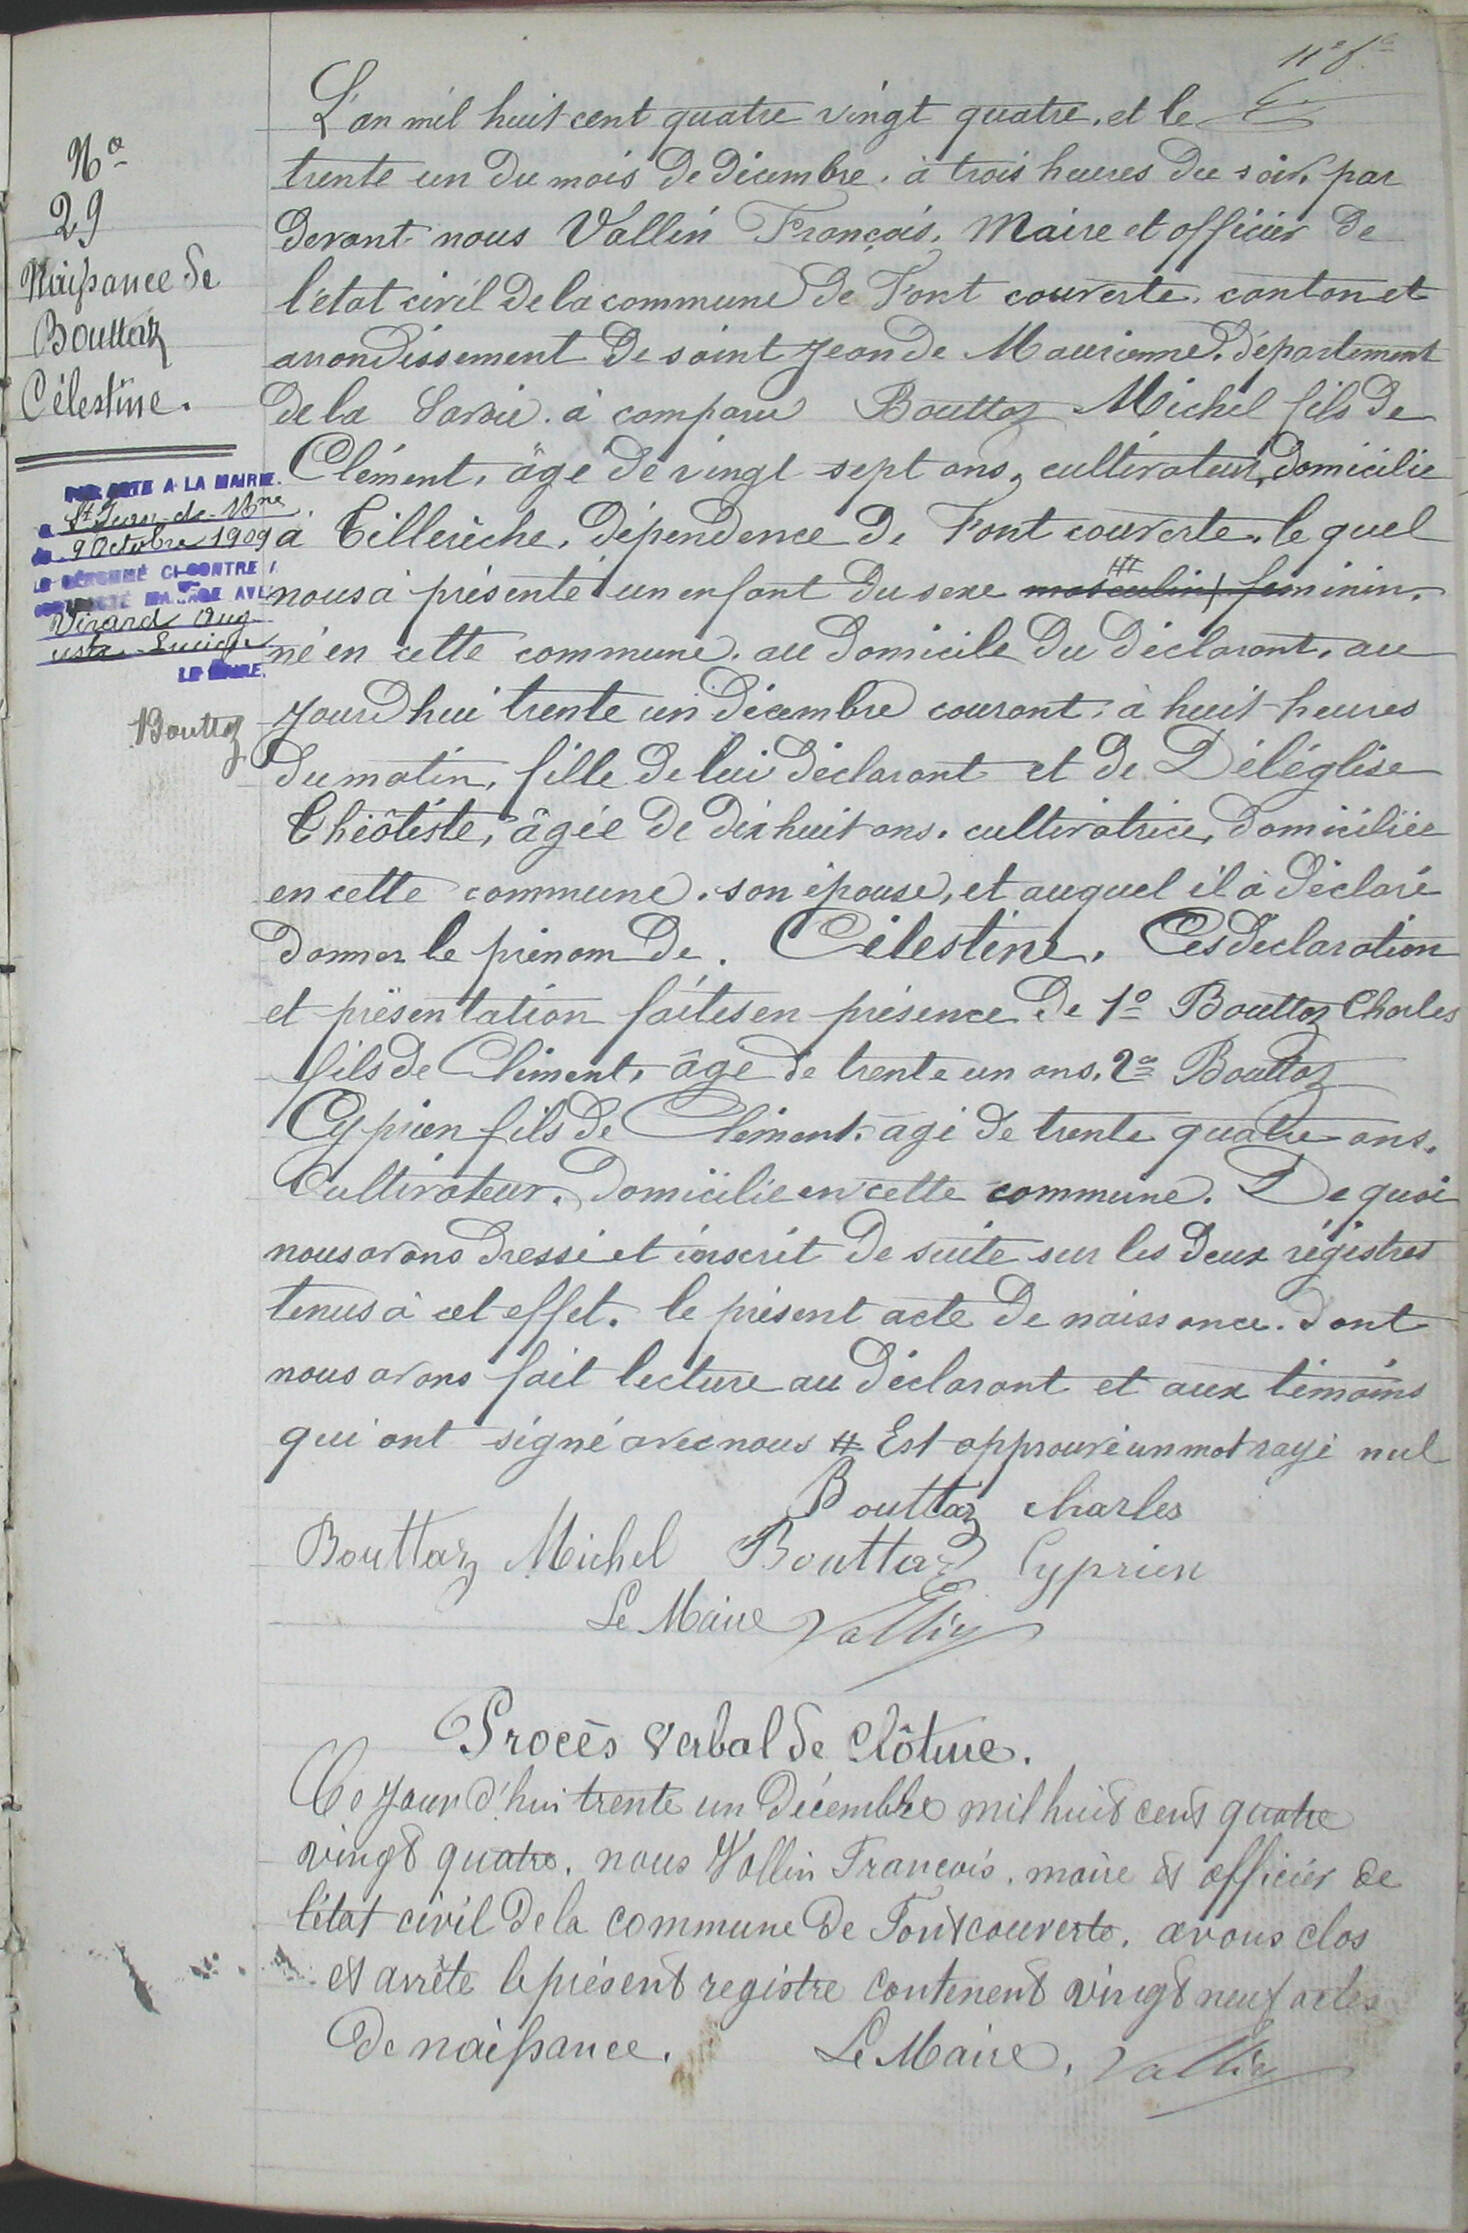 11e fet
No
29
Naissance de
Bouttaz
Célestine.
PAR ACTE A LA MAIRIE
a St Jean-de-Mne
du 9 Octobre 1909
LE DÉNOMMÉ CI-CONTRE A
CONTRACTÉ MARIAGE AVEC
Virard Aug
usta Lucie
LE MAIRE.
Bouttaz
L'an mil huit cent quatre vingt quatre. et le
trente un du mois de décembre. à trois heures du soir. par
devant nous Vallin François, Maire et officier de
l'état civil de la commune de Font couverte. canton et
arrondissement de saint Jean de Maurienne. département
de la Savoie. à comparu Bouttaz Michel fils de
Clément, âgé de vingt sept ans, cultivateur, domicilié
à Tillerèche, dépendence de Font couverte. le quel
nous à présenté un enfant du sexe masculin # feminin.
né en cette commune. au domicile du déclarant. au
jourd'hui trente un décembre courant. à huit heures
du matin, fille de lui déclarant et de Déléglise
Théotiste, âgée de dix huit ans. cultivatrice, domiciliée
en cette commune. son épouse, et auquel il à déclaré
donner le prénom de. Célestine. Ces declaration
et présentation faites en présence de 1o Bouttaz Charles
fils de Clément, âgé de trente un ans. 2o Bouttaz
Cyprien fils de Clément. agé de trente quatre ans.
Cultivateur. domicilié en cette commune. De quoi
nous avons dressé et inscrit de suite sur les deux régistres
tenus à cet effet. le présent acte de naissance. dont
nous avons fait lecture au déclarant et aux témoins
qui ont signé avec nous # Est approuvé un mot rayé nul
Bouttaz charles
Bouttaz Michel Bouttaz Cyprien
Le Maire Vallin
Procès verbal de Clôture.
Ce jour d'hui trente un décembre mil huit cent quatre
vingt quatre. nous Vallin François. maire et officier de
l'état civil de la commune de Fontcouverte. avons clos
et arrêté le présent registre contenent vingt neuf actes
de naissance. Le Maire, Vallin